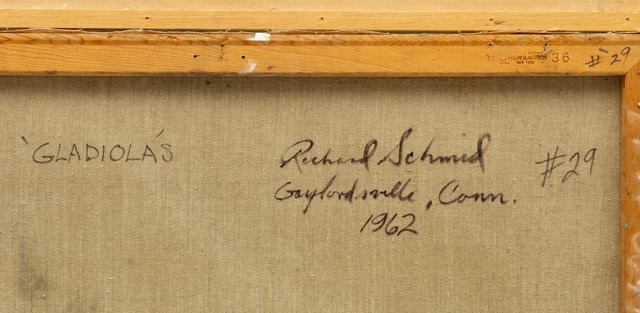 36 # 29
'GLADIOLA'S
Richard Schmid
Gaylordsville, Conn.
1962
#29